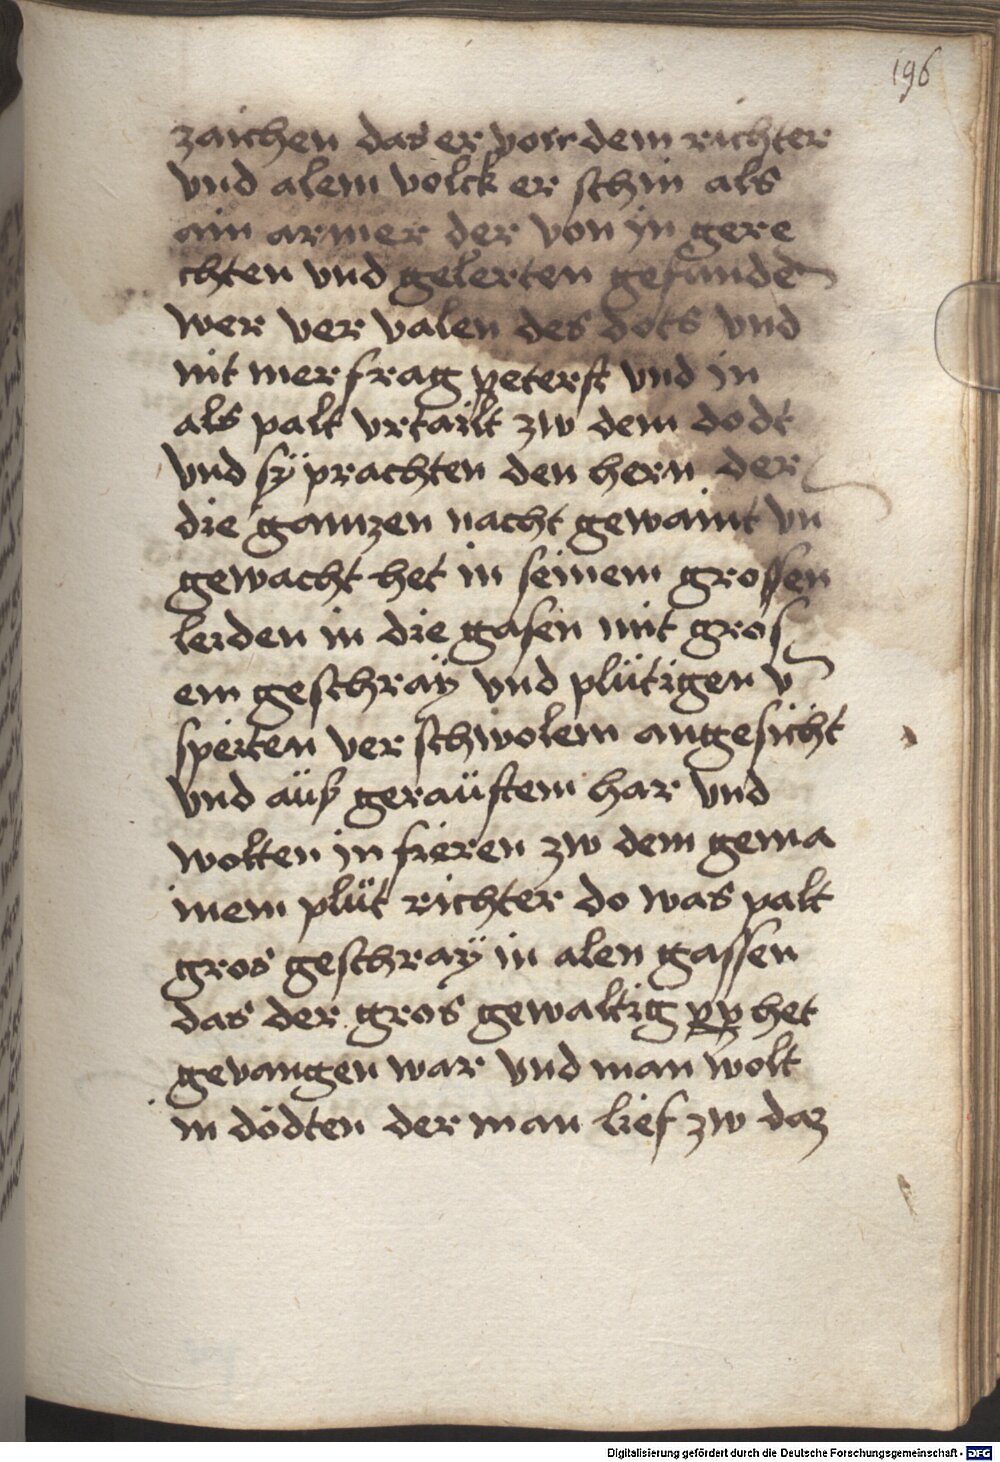 196
zaichen das er vor dem richter
vnd alem volck er schin als
ain armer der von in gere
chten vnd gelerten gefunden
wer ver valen des dots vnd
nit mer frag peterft vnd in
als palt vrtailt zw dem dodt
vnd sÿ prachten den hern der
die gannzen nacht gewaint vn
gewacht het in seinem grossen
leiden in die gasen mit gros
em geschraÿ vnd plütigen v
speiten ver schwolem angesicht
vnd aüß geraüftem har vnd
wolten in fieren zw dem gema
inem plüt richter do was palt
gros geschraÿ in alen gassen
das der gros gewaltig het
gevangen war vnd man wolt
in dödten der man lief zw daz
Digitalisierung gefördert durch die Deutsche Forschungsgemeinschaft - DFG